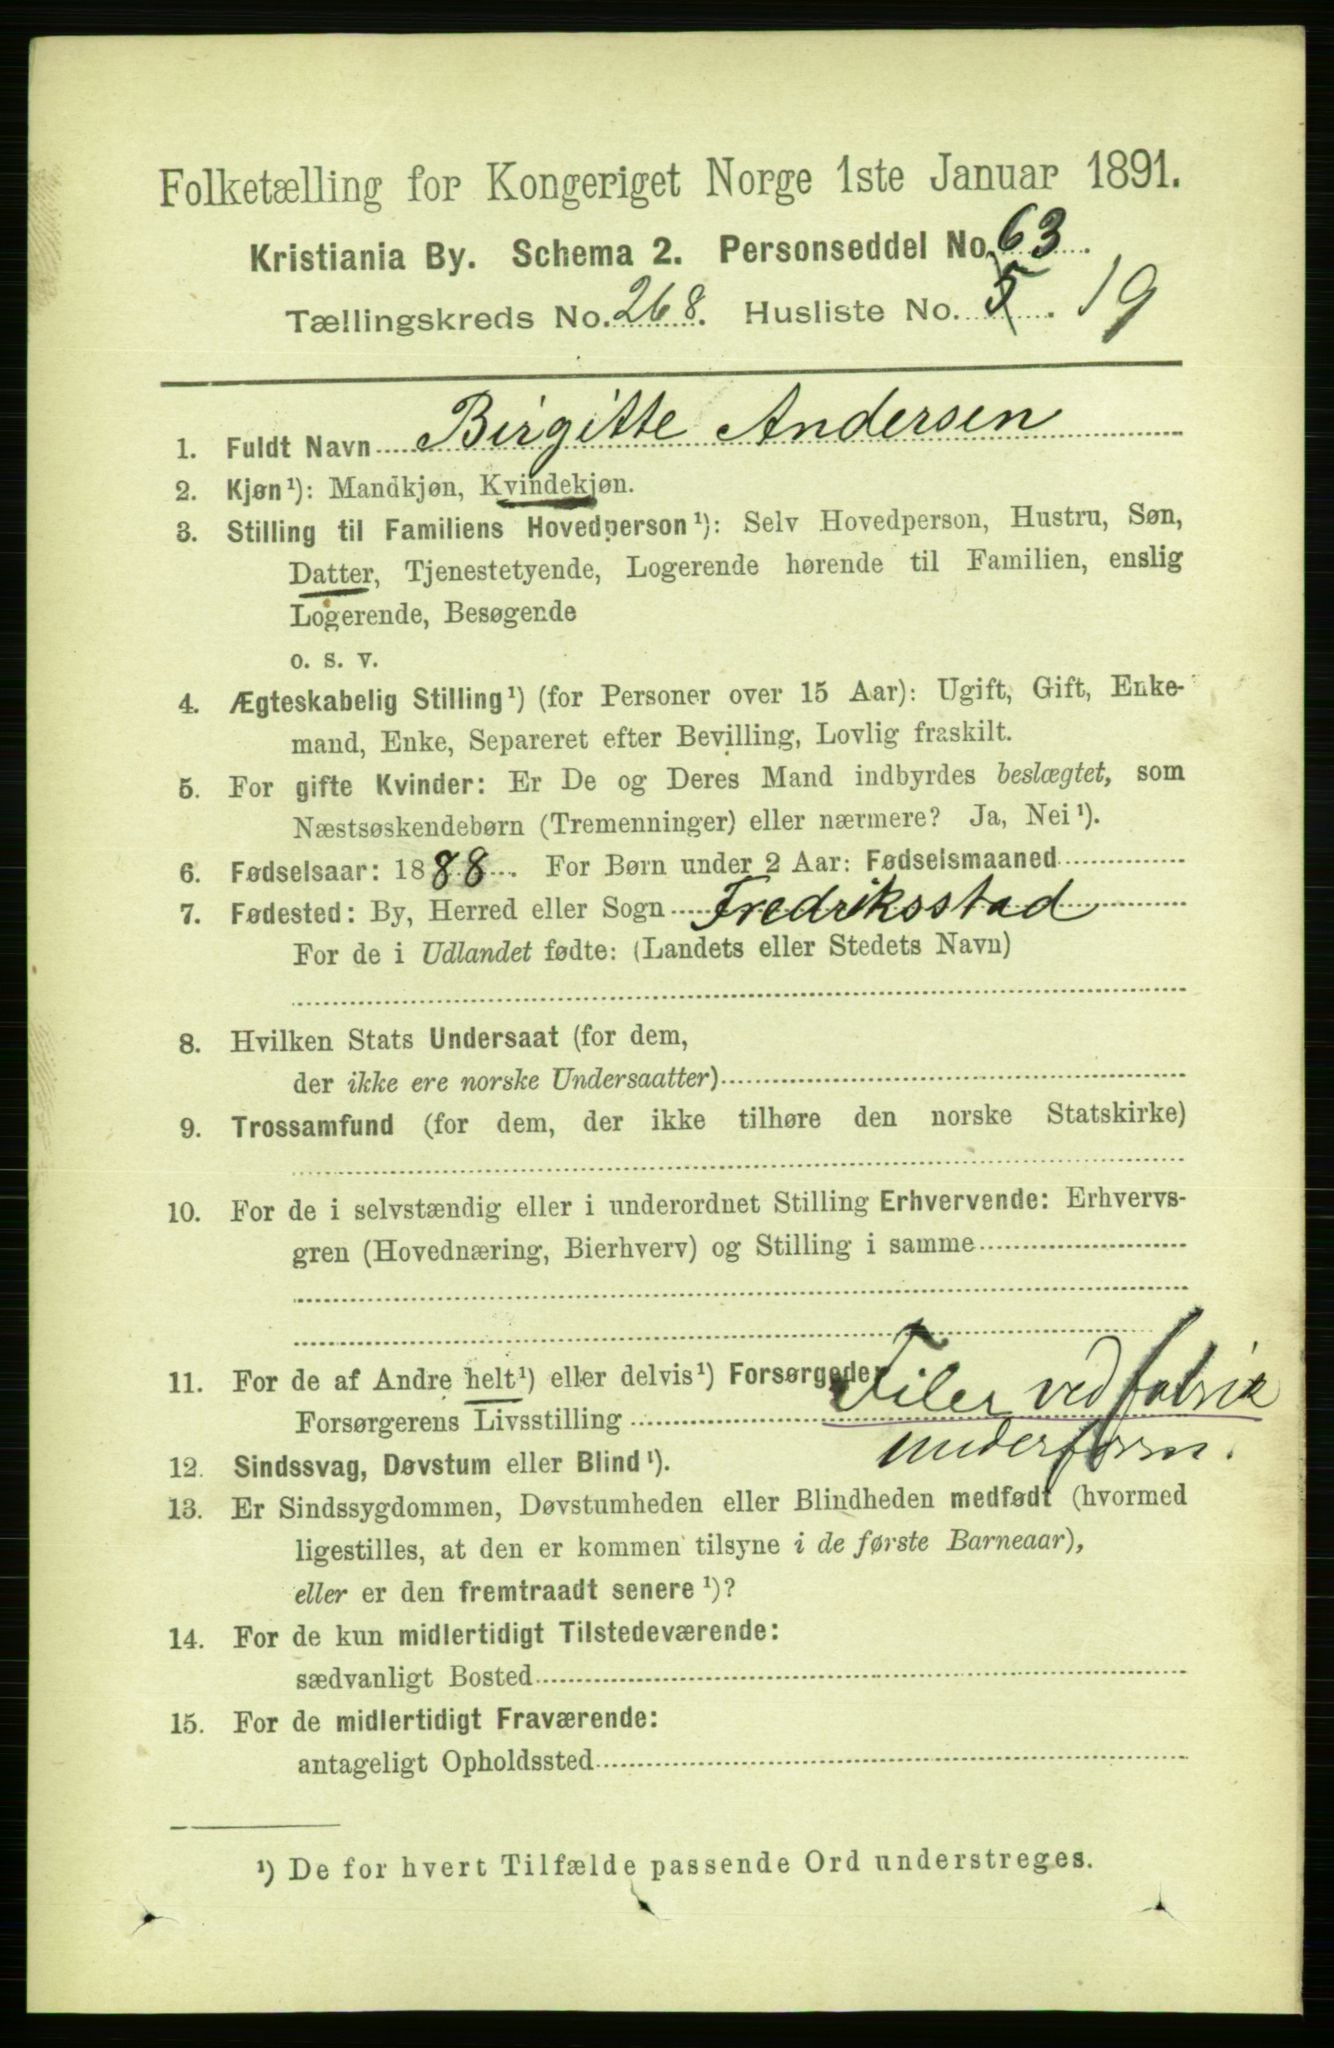 Folketælling for Kongeriget Norge 1ste Januar 1891.
Kristiania By. Schema 2. Personseddel No. 63.
Tællingskreds No. 268. Husliste No. 5. 19
1. Fuldt Navn Birgitte Andersen
2. Kjøn¹): Mandkjøn, Kvindekjøn.
3. Stilling til Familiens Hovedperson¹): Selv Hovedperson, Hustru, Søn,
Datter, Tjenestetyende, Logerende hørende til Familien, enslig
Logerende, Besøgende
o. s. v.
4. Ægteskabelig Stilling¹) (for Personer over 15 Aar): Ugift, Gift, Enke-
mand, Enke, Separeret efter Bevilling, Lovlig fraskilt.
5. For gifte Kvinder: Er De og Deres Mand indbyrdes beslægtet, som
Næstsøskendebørn (Tremenninger) eller nærmere? Ja, Nei¹).
6. Fødselsaar: 1888. For Børn under 2 Aar: Fødselsmaaned
7. Fødested: By, Herred eller Sogn Fredriksstad
For de i Udlandet fødte: (Landets eller Stedets Navn)
8. Hvilken Stats Undersaat (for dem,
der ikke ere norske Undersaatter)
9. Trossamfund (for dem, der ikke tilhøre den norske Statskirke)
10. For de i selvstændig eller i underordnet Stilling Erhvervende: Erhvervs-
gren (Hovednæring, Bierhverv) og Stilling i samme
11. For de af Andre helt¹) eller delvis¹) Forsørgede,
Forsørgerens Livsstilling Filer ved fabrik
12. Sindssvag, Døvstum eller Blind¹).
13. Er Sindssygdommen, Døvstumheden eller Blindheden medfødt (hvormed
ligestilles, at den er kommen tilsyne i de første Barneaar),
eller er den fremtraadt senere¹)?
14. For de kun midlertidigt Tilstedeværende:
sædvanligt Bosted
15. For de midlertidigt Fraværende:
antageligt Opholdssted
¹) De for hvert Tilfælde passende Ord understreges.